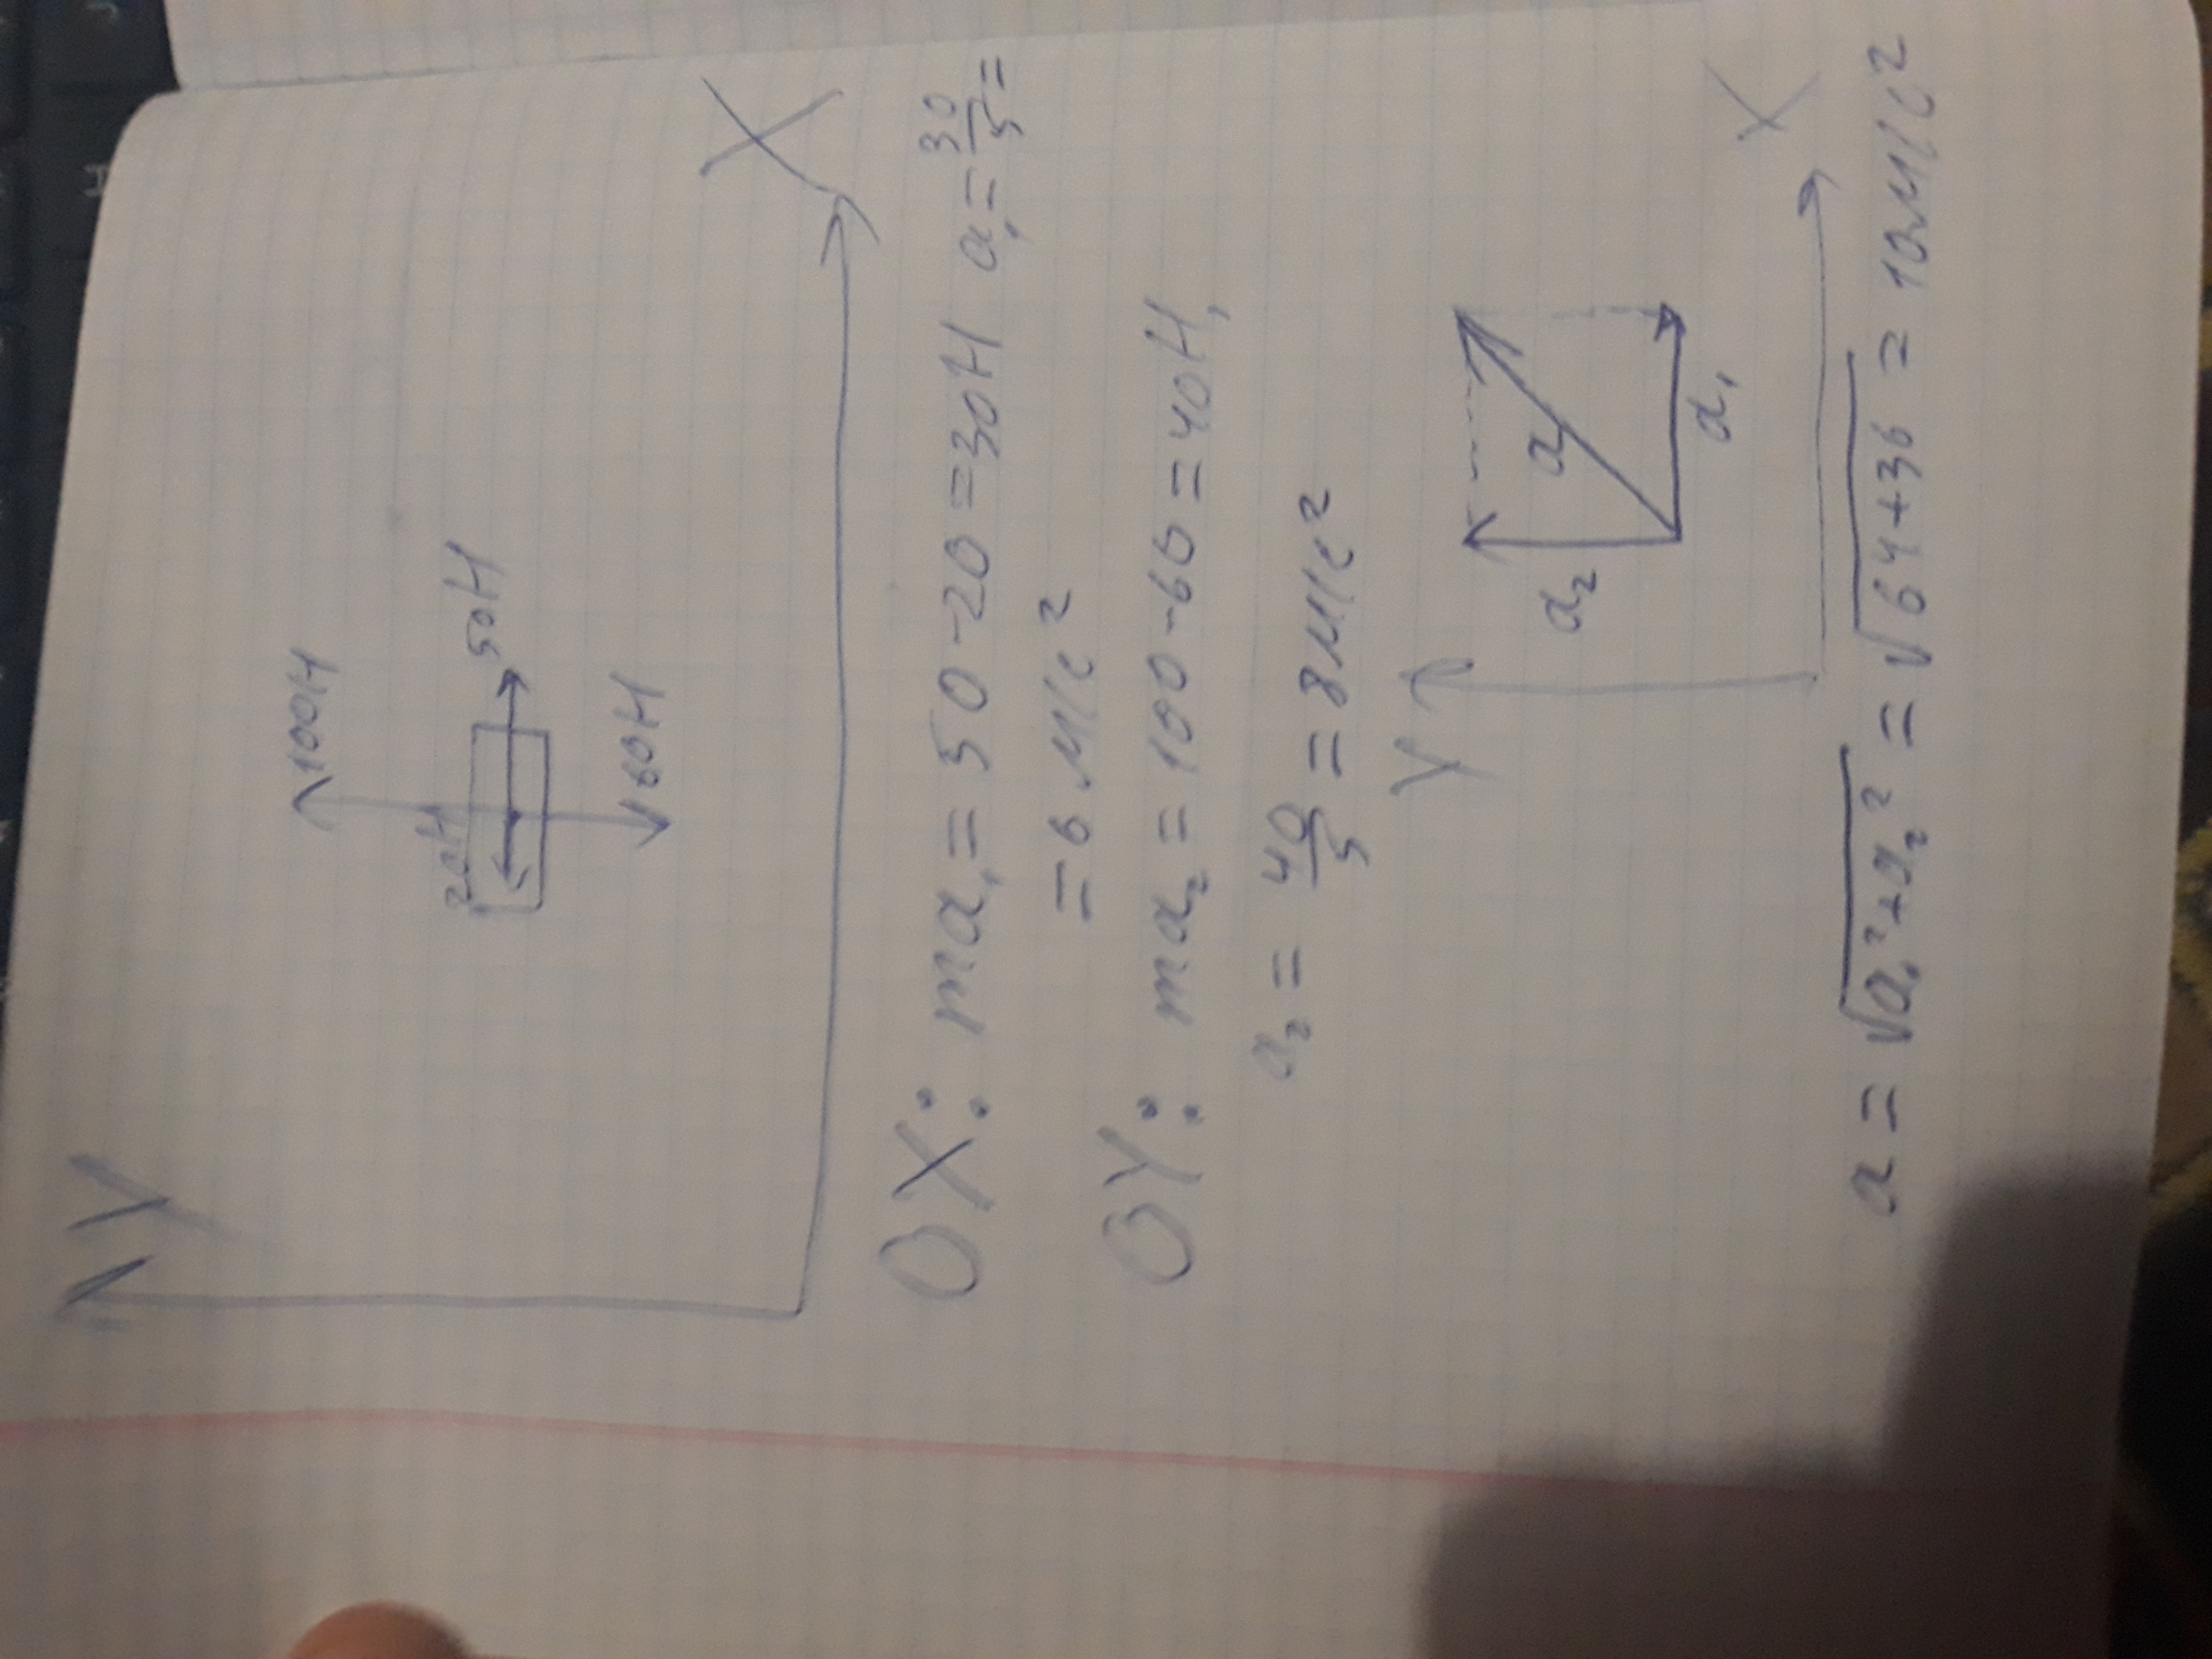 Y
100Н
20Н
50Н
60Н
X
OX: ma₁ = 50 - 20 = 30Н a₁ = 30/5 =
= 6 м/с²
OY: ma₂ = 100 - 60 = 40Н,
a₂ = 40/5 = 8 м/с²
Y
a₂
a
a₁
X
a = √a₁² + a₂² = √64 + 36 = 10 м/с²